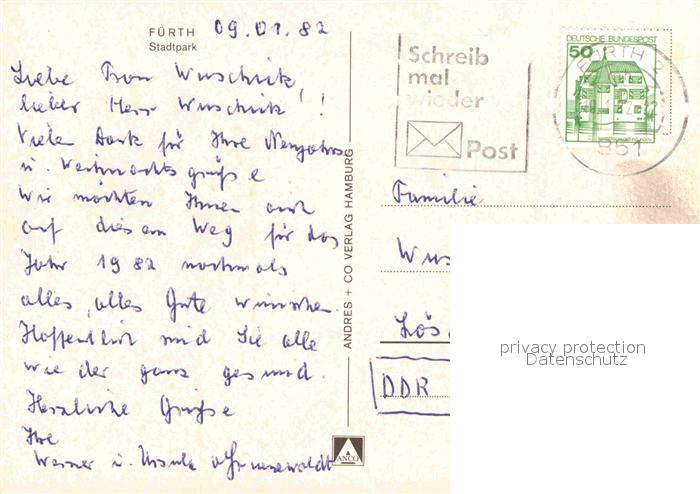 FÜRTH
Stadtpark
09.01.82
Liebe Frau Wuschik,
lieber Herr Wuschik!
Vielen Dank für Ihre Neujahrs
u. Weihnachtsgrüße
Wir möchten Ihnen auch
auf diesem Weg für das
Jahr 1982 nochmals
alles, alles Gute wünschen.
Hoffentlich sind Sie alle
wieder ganz gesund.
Herzliche Grüße
Ihre
Werner u. Ursula
ANDRES + CO VERLAG HAMBURG
ANCO
Schreib
mal
wieder
Post
DEUTSCHE BUNDESPOST
50
FÜRTH
851
Familie
Wus
Lös
DDR
privacy protection
Datenschutz